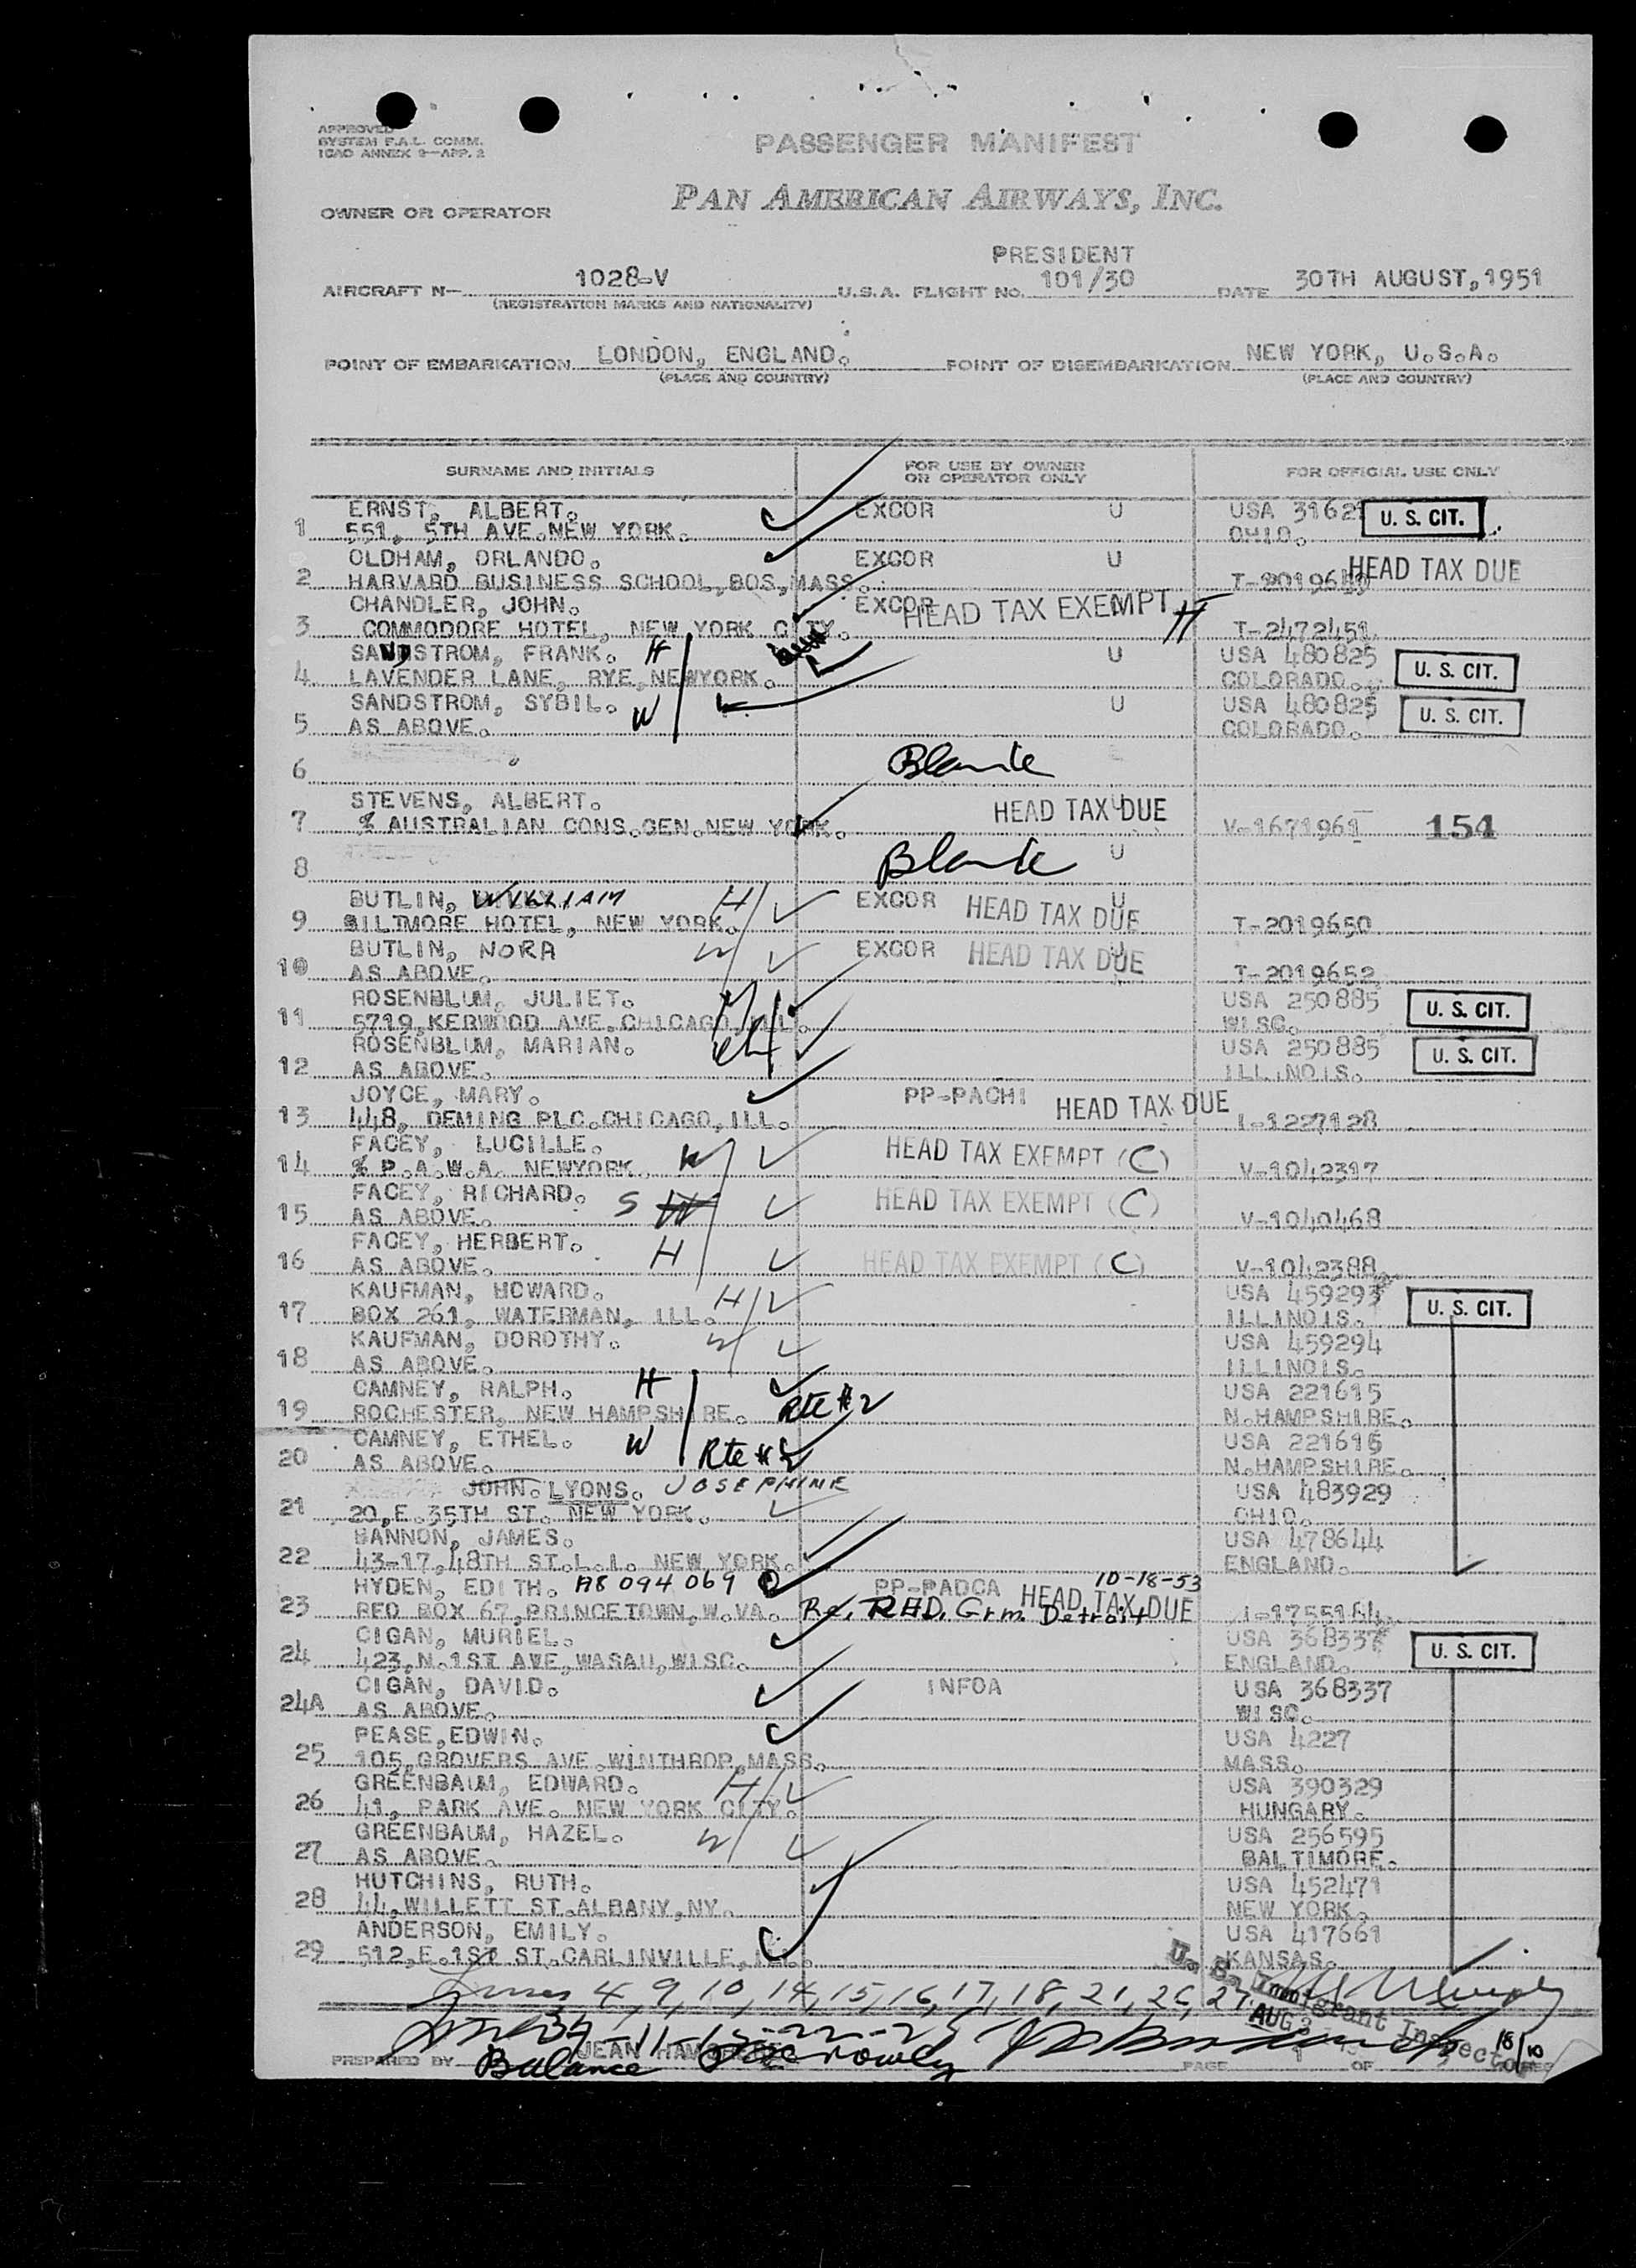 APPROVED
SYSTEM F.A.L. COMM.
ICAO ANNEX 9—APP. 2
PASSENGER MANIFEST
OWNER OR OPERATOR PAN AMERICAN AIRWAYS, INC.
PRESIDENT
AIRCRAFT N— 1028-V U.S.A. FLIGHT NO. 101/30 DATE 30TH AUGUST, 1951
(REGISTRATION MARKS AND NATIONALITY)
POINT OF EMBARKATION LONDON, ENGLAND. POINT OF DISEMBARKATION NEW YORK, U.S.A.
(PLACE AND COUNTRY) (PLACE AND COUNTRY)
SURNAME AND INITIALS FOR USE BY OWNER OR OPERATOR ONLY FOR OFFICIAL USE ONLY
ERNST, ALBERT. EXCOR U USA 3162 U. S. CIT.
1 551, 5TH AVE.NEW YORK. OHIO.
OLDHAM, ORLANDO. EXCOR U HEAD TAX DUE
2 HARVARD BUSINESS SCHOOL,BOS,MASS. T-2019649
CHANDLER, JOHN. EXCOR HEAD TAX EXEMPT H
3 COMMODORE HOTEL, NEW YORK CITY. T-2472451
SANDSTROM, FRANK. H U USA 480825 U. S. CIT.
4 LAVENDER LANE, RYE,NEWYORK. COLORADO.
SANDSTROM, SYBIL. W U USA 480825 U. S. CIT.
5 AS ABOVE. COLORADO.
6 Blank
STEVENS, ALBERT. HEAD TAX DUE U
7 % AUSTRALIAN CONS.GEN.NEW YORK. V-1671961 154
8 Blank U
BUTLIN, WILLIAM H EXCOR HEAD TAX DUE U
9 BILTMORE HOTEL, NEW YORK. T-2019650
BUTLIN, NORA W EXCOR HEAD TAX DUE U
10 AS ABOVE. T-2019652
ROSENBLUM, JULIET. M USA 250885 U. S. CIT.
11 5719,KERWOOD AVE.CHICAGO,ILL. WISC.
ROSENBLUM, MARIAN. USA 250885 U. S. CIT.
12 AS ABOVE. ILLINOIS.
JOYCE, MARY. PP-PACHI HEAD TAX DUE
13 448, DEMING PLC.CHICAGO,ILL. I-1227128
FACEY, LUCILLE. HEAD TAX EXEMPT (C)
14 % P.A.W.A. NEWYORK. W V-1042317
FACEY, RICHARD. S W HEAD TAX EXEMPT (C)
15 AS ABOVE. V-1040468
FACEY, HERBERT. H HEAD TAX EXEMPT (C)
16 AS ABOVE. V-1042388
KAUFMAN, HOWARD. H USA 459293 U. S. CIT.
17 BOX 261, WATERMAN, ILL. ILLINOIS.
KAUFMAN, DOROTHY. W USA 459294
18 AS ABOVE. ILLINOIS.
CAMNEY, RALPH. H USA 221615
19 ROCHESTER, NEW HAMPSHIRE. Rte #2 N.HAMPSHIRE.
CAMNEY, ETHEL. W USA 221615
20 AS ABOVE. Rte #2 N.HAMPSHIRE.
JOHN. LYONS. JOSEPHINE USA 483929
21 20,E.35TH ST. NEW YORK. OHIO.
BANNON, JAMES. USA 478644
22 43-17,48TH ST.L.I. NEW YORK. ENGLAND.
HYDEN, EDITH. A8 094 069 PP-PADCA HEAD TAX DUE 10-18-53
23 RED BOX 67,PRINCETOWN,W.VA. Re. R&D. Grm. Detroit I-1755164
CIGAN, MURIEL. USA 368337 U. S. CIT.
24 423,N.1ST AVE,WASAU,WISC. ENGLAND.
CIGAN, DAVID. INFOA USA 368337
24A AS ABOVE. WISC.
PEASE,EDWIN. USA 4227
25 105,GROVERS AVE.WINTHROP,MASS. MASS.
GREENBAUM, EDWARD. H USA 390329
26 41, PARK AVE. NEW YORK CITY. HUNGARY.
GREENBAUM, HAZEL. W USA 256595
27 AS ABOVE. BALTIMORE.
HUTCHINS, RUTH. USA 452471
28 44,WILLETT ST.ALBANY,NY. NEW YORK.
ANDERSON, EMILY. USA 417661
29 512,E.1ST ST.CARLINVILLE,ILL. KANSAS.
Lines 4, 9, 10, 14, 15, 16, 17, 18, 21, 26, 27
U. S. Immigrant Inspector
AUG 3
PREPARED BY JEAN PAGE 1 OF
Balance